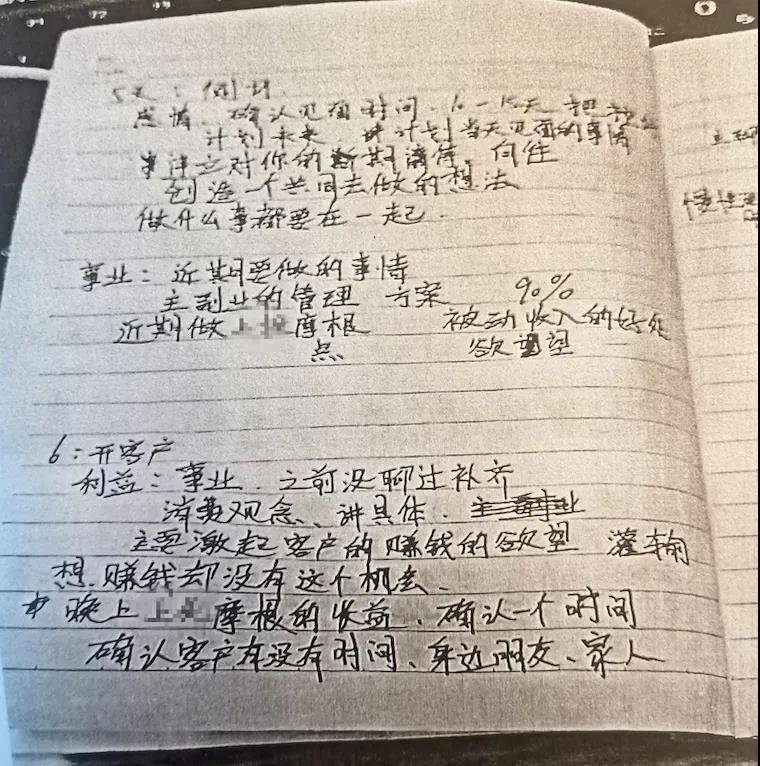 5天：
感情、确认见面时间、10-15天
计划未来 计划当天见面的事情
对你的 期 向往
创造一个共同去做的想法
做什么事都要在一起.
事业：近期要做的事情
主副业的管理 方案 90%
近期做 摩根 被动收入的好处
点 欲望
6：开客户
利益：事业、之前没聊过补齐
消费观念、讲具体.
主要激起客户的赚钱的欲望 灌输
想.赚钱却没有这个机会、
晚上 摩根的收益、确认一个时间
确认客户有没有时间、身边朋友、家人